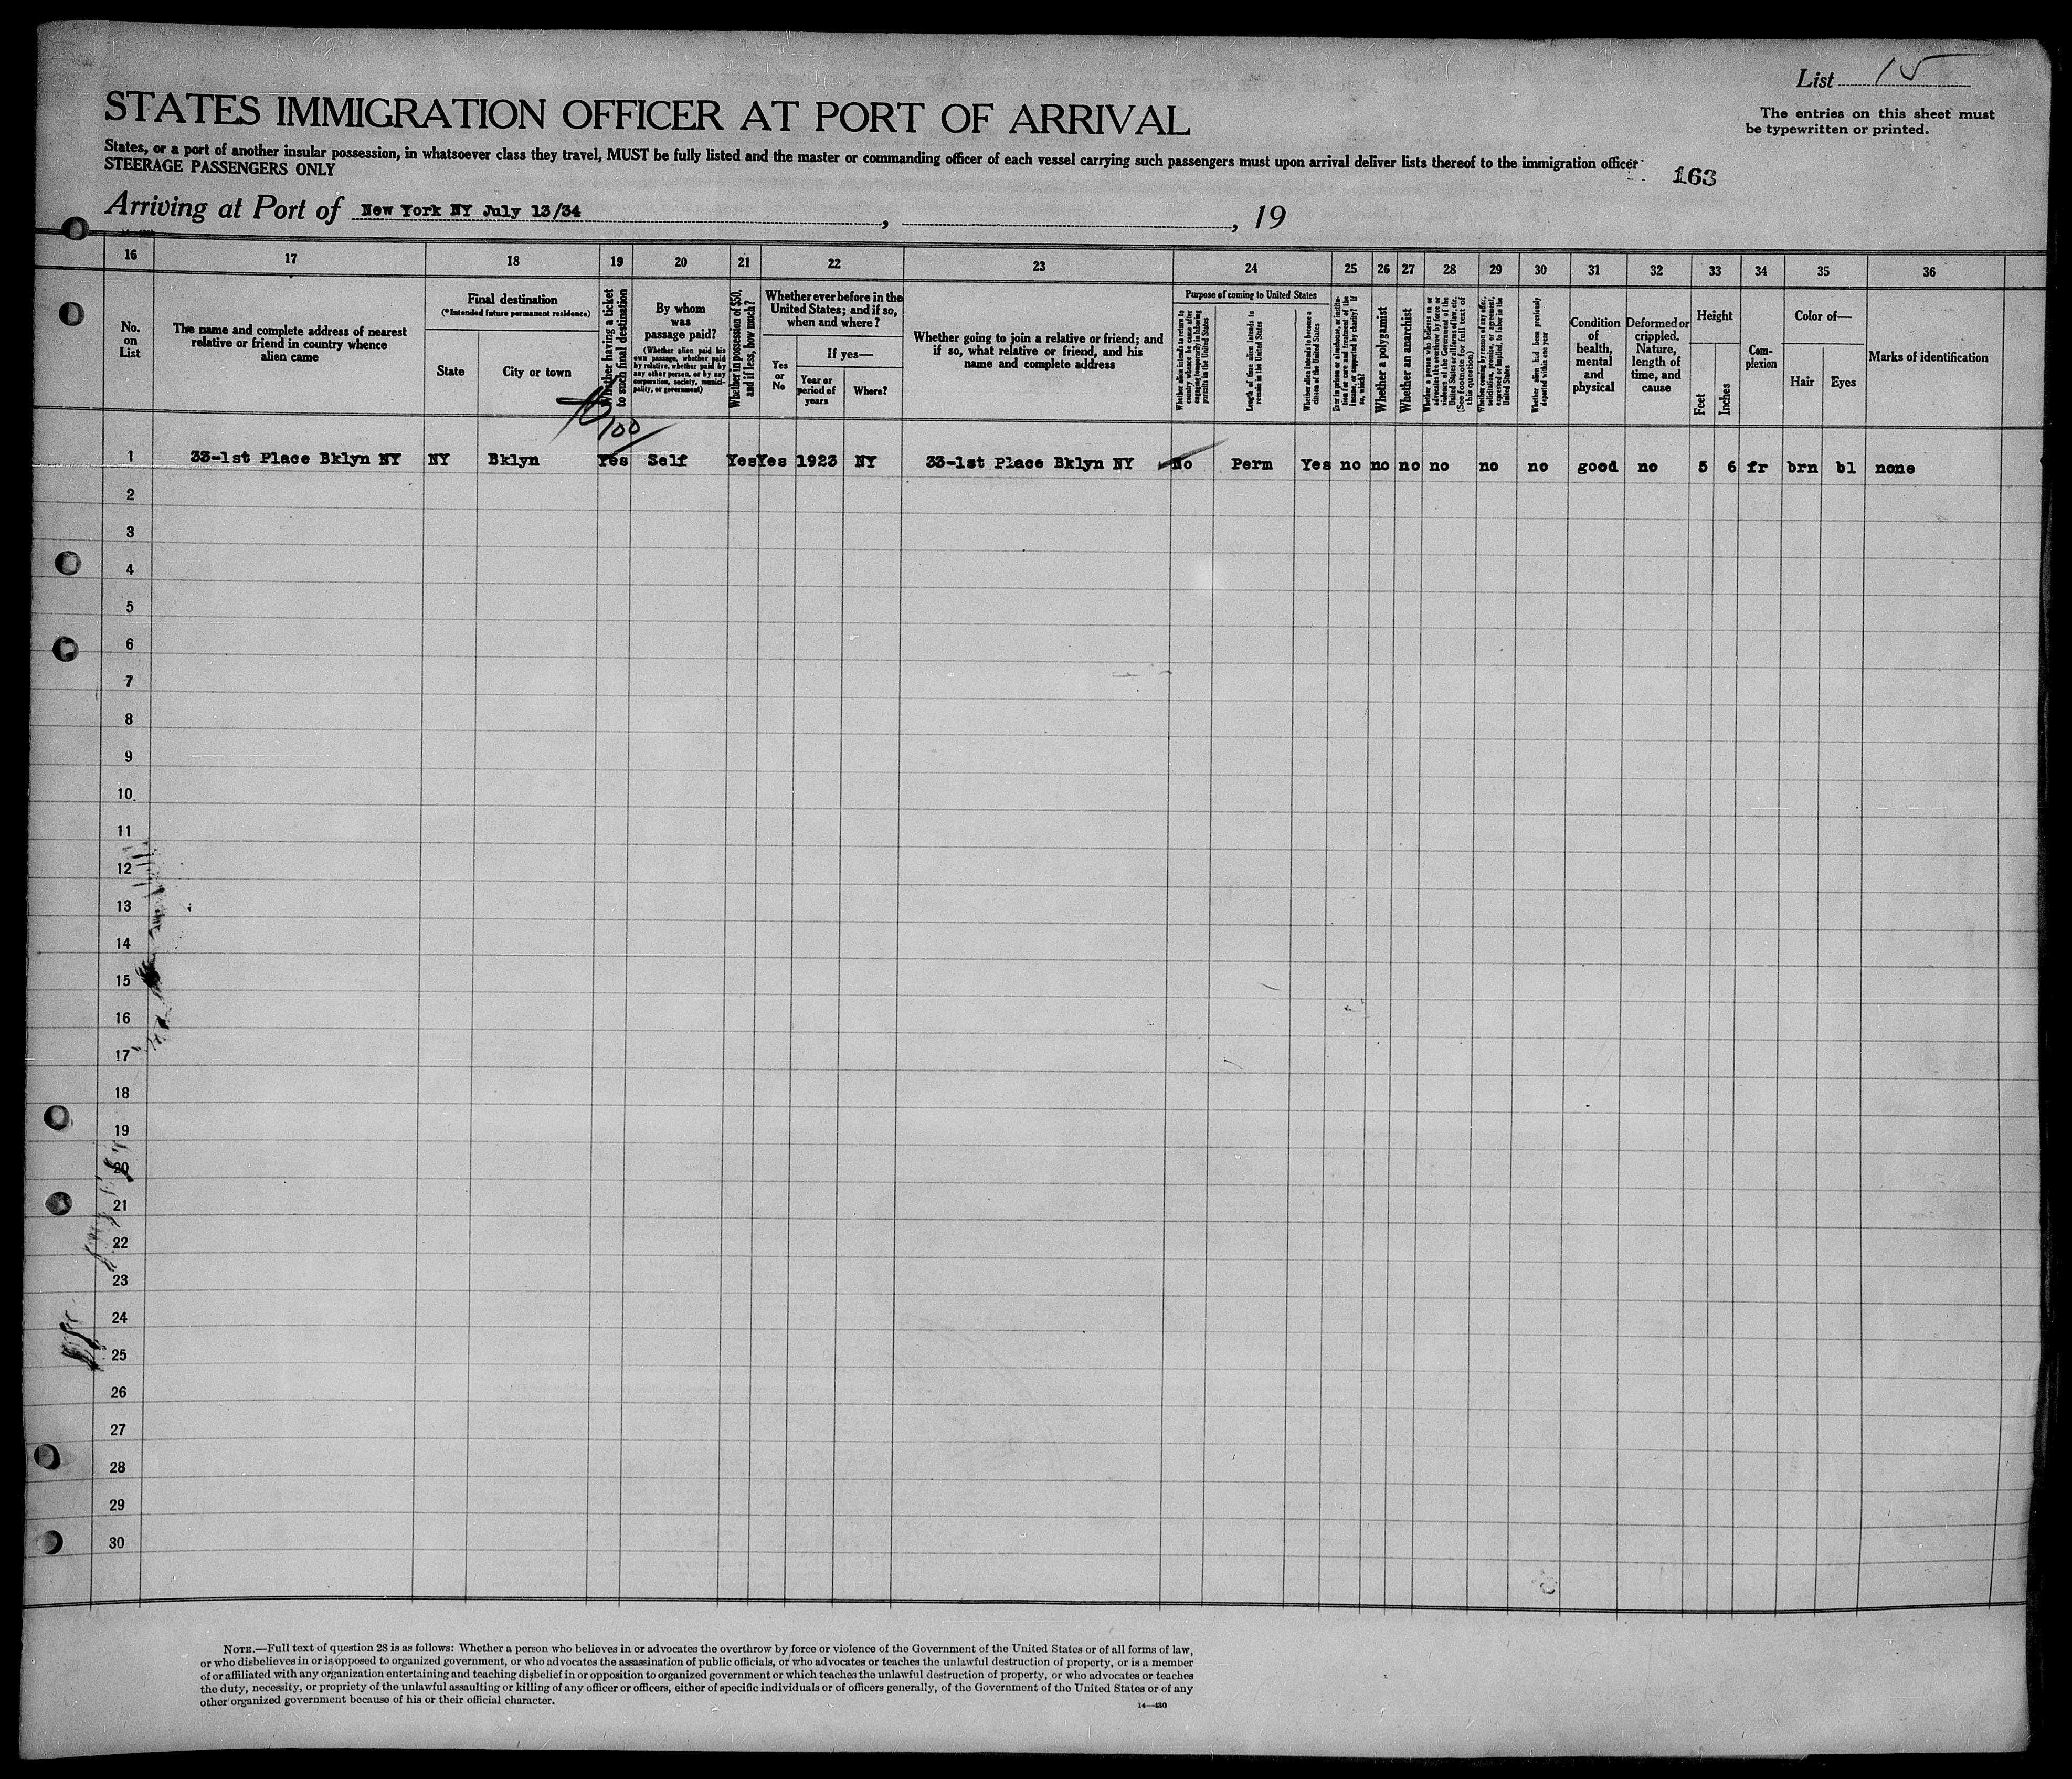 List 15
The entries on this sheet must
be typewritten or printed.
STATES IMMIGRATION OFFICER AT PORT OF ARRIVAL
States, or a port of another insular possession, in whatsoever class they travel, MUST be fully listed and the master or commanding officer of each vessel carrying such passengers must upon arrival deliver lists thereof to the immigration officer
STEERAGE PASSENGERS ONLY
163
Arriving at Port of New York NY July 13/34, , 19
16 17 18 19 20 21 22 23 24 25 26 27 28 29 30 31 32 33 34 35 36
No.
on
List
The name and complete address of nearest
relative or friend in country whence
alien came
Final destination
(*Intended future permanent residence)
State
City or town
Whether having a ticket
to such final destination
By whom
was
passage paid?
(Whether alien paid his
own passage, whether paid
by relative, whether paid by
any other person, or by any
corporation, society, munici-
pality, or government)
Whether in possession of $50,
and if less, how much?
Whether ever before in the
United States; and if so,
when and where?
Yes
or
No
If yes—
Year or
period of
years
Where?
Whether going to join a relative or friend; and
if so, what relative or friend, and his
name and complete address
Purpose of coming to United States
Whether alien intends to return to
country whence he came after
engaging temporarily in laboring
pursuits in the United States
Length of time alien intends to
remain in the United States
Whether alien intends to become a
citizen of the United States
Ever in prison or almshouse, or institu-
tion for care and treatment of the
insane, or supported by charity? If
so, which?
Whether a polygamist
Whether an anarchist
Whether a person who believes in or
advocates the overthrow by force or
violence of the Government of the
United States or all forms of law, etc.
(See footnote for full text of
this question)
Whether coming by reason of any offer,
solicitation, promise, or agreement,
expressed or implied, to labor in the
United States
Whether alien had been previously
deported within one year
Condition
of
health,
mental
and
physical
Deformed or
crippled.
Nature,
length of
time, and
cause
Height
Feet
Inches
Com-
plexion
Color of—
Hair
Eyes
Marks of identification
100
1 33-1st Place Bklyn NY NY Bklyn Yes Self Yes Yes 1923 NY 33-1st Place Bklyn NY No Perm Yes no no no no no no good no 5 6 fr brn bl none
2
3
4
5
6
7
8
9
10
11
12
13
14
15
16
17
18
19
20
21
22
23
24
25
26
27
28
29
30
NOTE.—Full text of question 28 is as follows: Whether a person who believes in or advocates the overthrow by force or violence of the Government of the United States or of all forms of law,
or who disbelieves in or is opposed to organized government, or who advocates the assassination of public officials, or who advocates or teaches the unlawful destruction of property, or is a member
of or affiliated with any organization entertaining and teaching disbelief in or opposition to organized government or which teaches the unlawful destruction of property, or who advocates or teaches
the duty, necessity, or propriety of the unlawful assaulting or killing of any officer or officers, either of specific individuals or of officers generally, of the Government of the United States or of any
other organized government because of his or their official character.
14—430